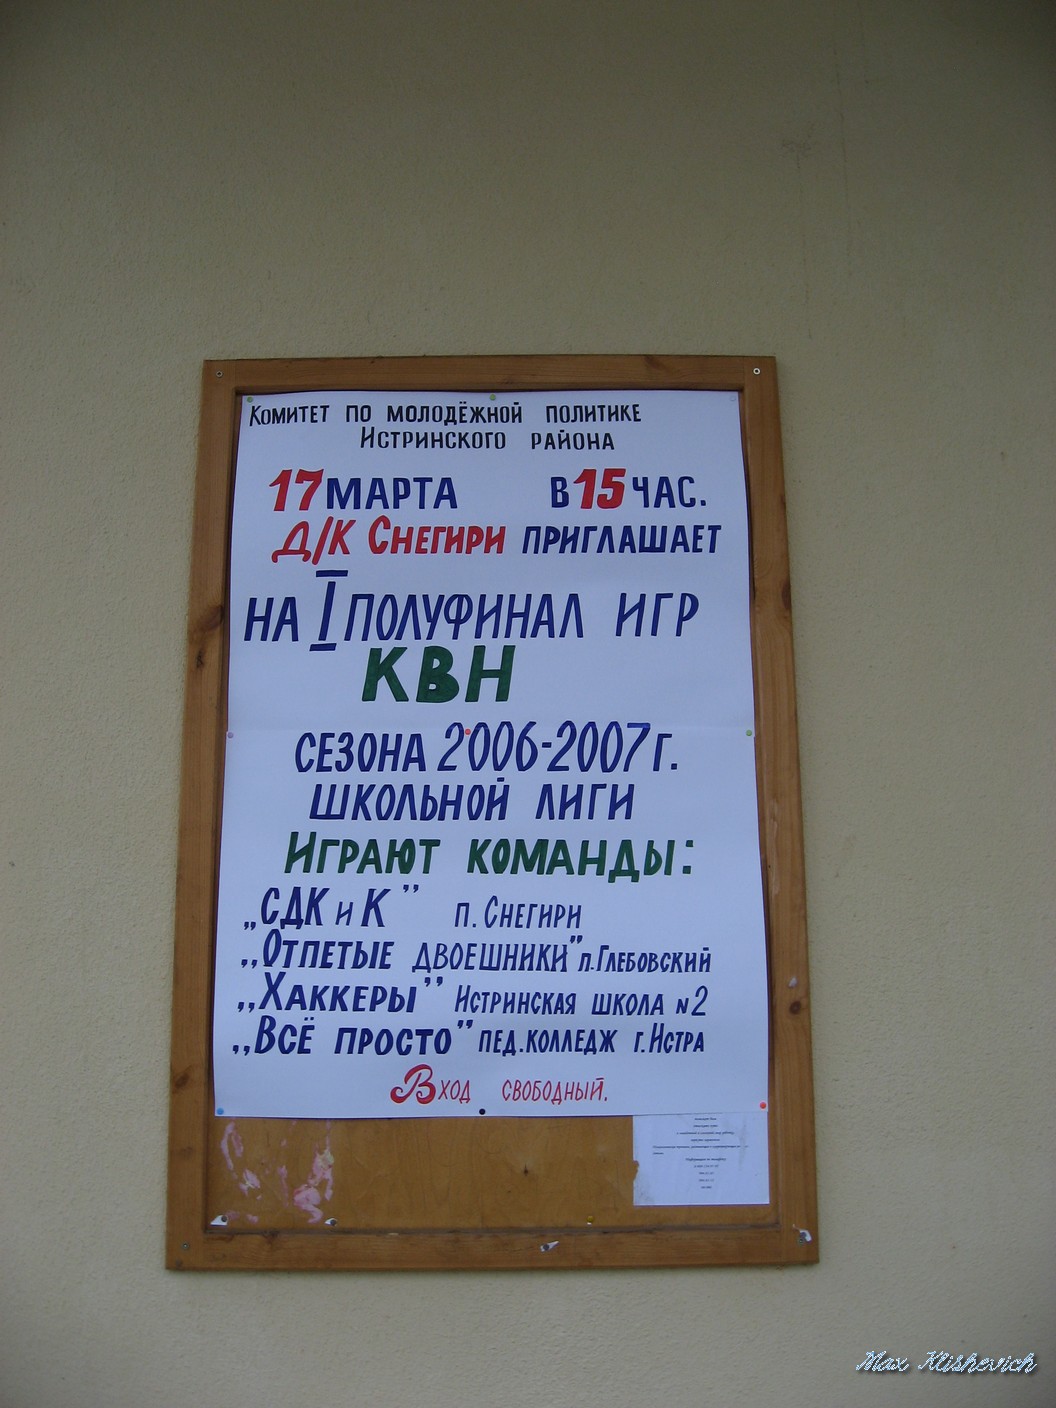 Комитет по молодёжной политике
Истринского района
17 марта в 15 час.
Д/К Снегири приглашает
на I полуфинал игр
КВН
сезона 2006-2007г.
школьной лиги
Играют команды:
„СДК и К” п. Снегири
„Отпетые двоешники” п. Глебовский
„Хаккеры” Истринская школа №2
„Всё просто” пед. колледж г. Истра
Вход свободный.
Max Klishevich